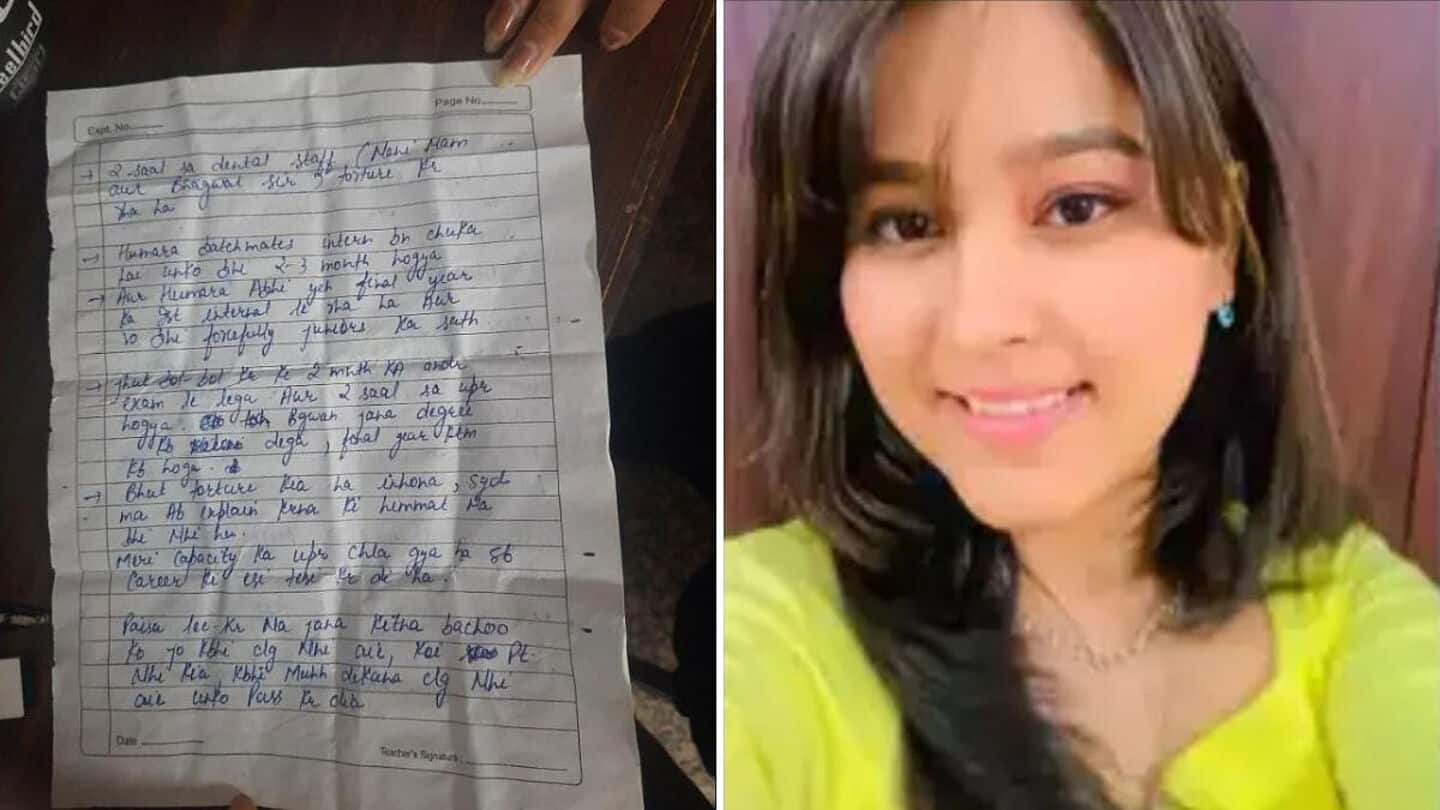 eelbird
Page No.
Expt. No.
→ 2 saal sa dental staff (Mam
aur Bhagwat sir torture kr
rha ha
→ Humara batchmates intern bn chuka
hai unko bhi 2-3 month hogya
→ Aur Humara Abhi yeh final year
ka 1st internal le rha ha Aur
vo bhi forcefully juniors ka sath
→ jhut bol-bol kr ke 2 month KA andr
exam le lega Aur 2 saal sa upr
hogya. Bgwan jana degree
Kb dega, final year ktm
Kb hoga.
→ Bhut torture kia ha inhona, syd
ma Ab explain krna ki himmat Na
bhi Nhi hu.
Meri Capacity ka upr chla gya ha sb
Career ki esi tesi kr di ha.
Paisa lee-kr Na jana kitna bachoo
ko jo kbhi clg Nhi aie, koi Pt.
Nhi kia, kbhi Muhh dikana clg Nhi
aie unko Pass kr dia
Date
Teacher's Signature: